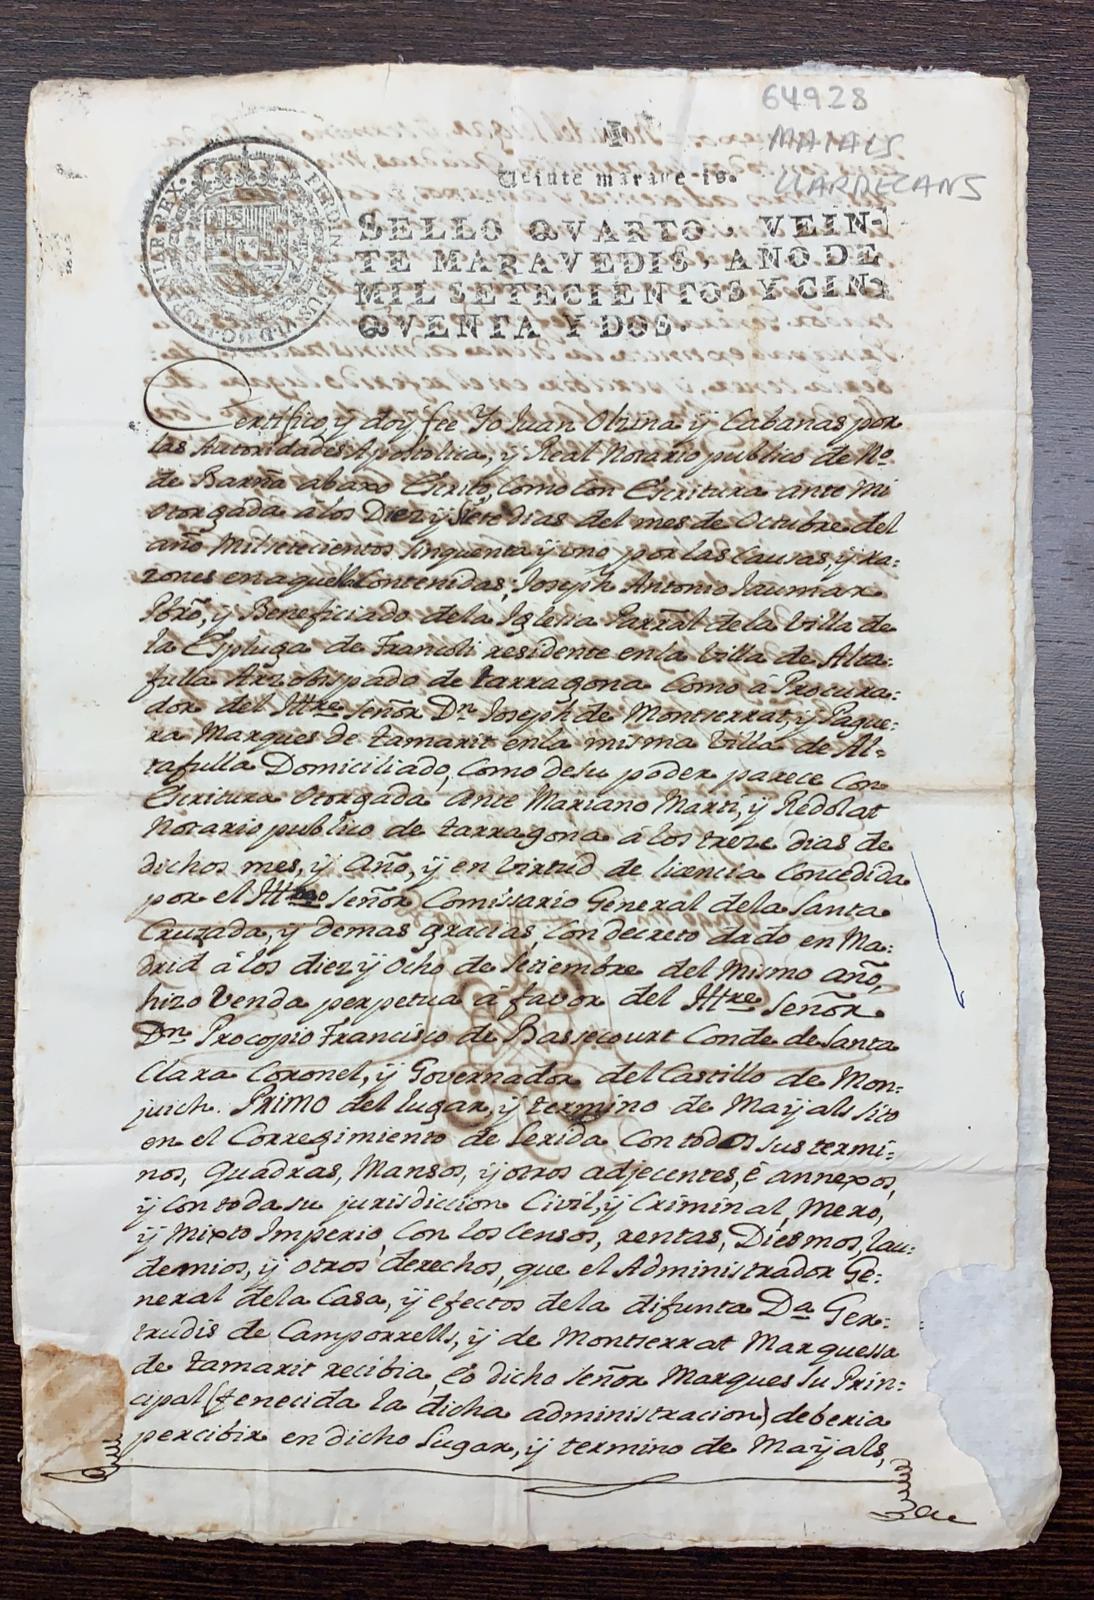 64928
MAIALS
LLARDECANS
Veinte maravedis.
SELLO QVARTO, VEIN-
TE MARAVEDIS, AÑO DE
MIL SETECIENTOS Y CIN-
QVENTA Y DOS.
Certifico, y doy fee Yo Juan Olzina ÿ Cabanas por
las Autoridades Apostolica, y Real Notario publico de No
de Barña abaxo Escrito, como con Escritura ante Mi
otorgada â los Diez ÿ Siete dias del mes de Octubre del
año Mil setecientos sinquenta ÿ uno por las causas, ÿ ra:
zones en aquella Contenidas; Joseph Antonio Jaumar
Pbrõ, y Beneficiado dela Iglesia Parrãl de la Villa de
la Espluga de Francoli residente en la Villa de Alta:
fulla Arzobispado de tarragona Como â Procura:
dor del Illtre Señor Dn Joseph de Montserrat, ÿ Pague:
ra Marques de tamarit en la misma Villa de Al:
tafulla Domiciliado, como de su poder parece Con
Escritura Otorgada Ante Mariano Marti, ÿ Redolat
Notario publico de tarragona â los treze dias de
dichos mes, ÿ Año, ÿ en Virtud de licencia Concedida
por el Señor Comissario General dela Santa
Cruzada, y demas gracias, Con decreto dado en Ma:
drid â los diez ÿ Ocho de Setiembre del Mismo año,
hizo Venda perpetua â favor del Illtre Señor
Dn Procopio Francisco de Bassecourt Conde de Santa
Clara Coronel, ÿ Governador del Castillo de Mon:
juich. PRIMO del lugar, ÿ termino de Maÿals sito
en el Corregimiento de Lerida Con todos sus termi:
nos, quadras, Mansos, ÿ otros adjecentes, ê annexos,
ÿ con toda su jurisdiccion Civil, ÿ Criminal, Mero,
ÿ Mixto Imperio, Con los Censos, rentas, Diesmos, lau:
demios, ÿ otros derechos, que el Administrador Ge:
neral dela Casa, ÿ efectos dela difunta Da Ger:
trudis de Camporrells, ÿ de Montserrat Marquesa
de tamarit recibia, êo dicho Señor Marques su Prin:
cipal (fenecida la dicha administracion) deberia
percibir en dicho Lugar, ÿ termino de Maÿals,